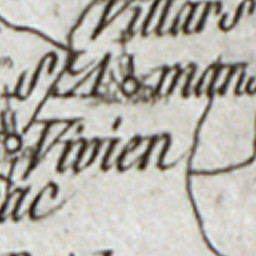 Villars
S.^t Amans
Vivien
ac